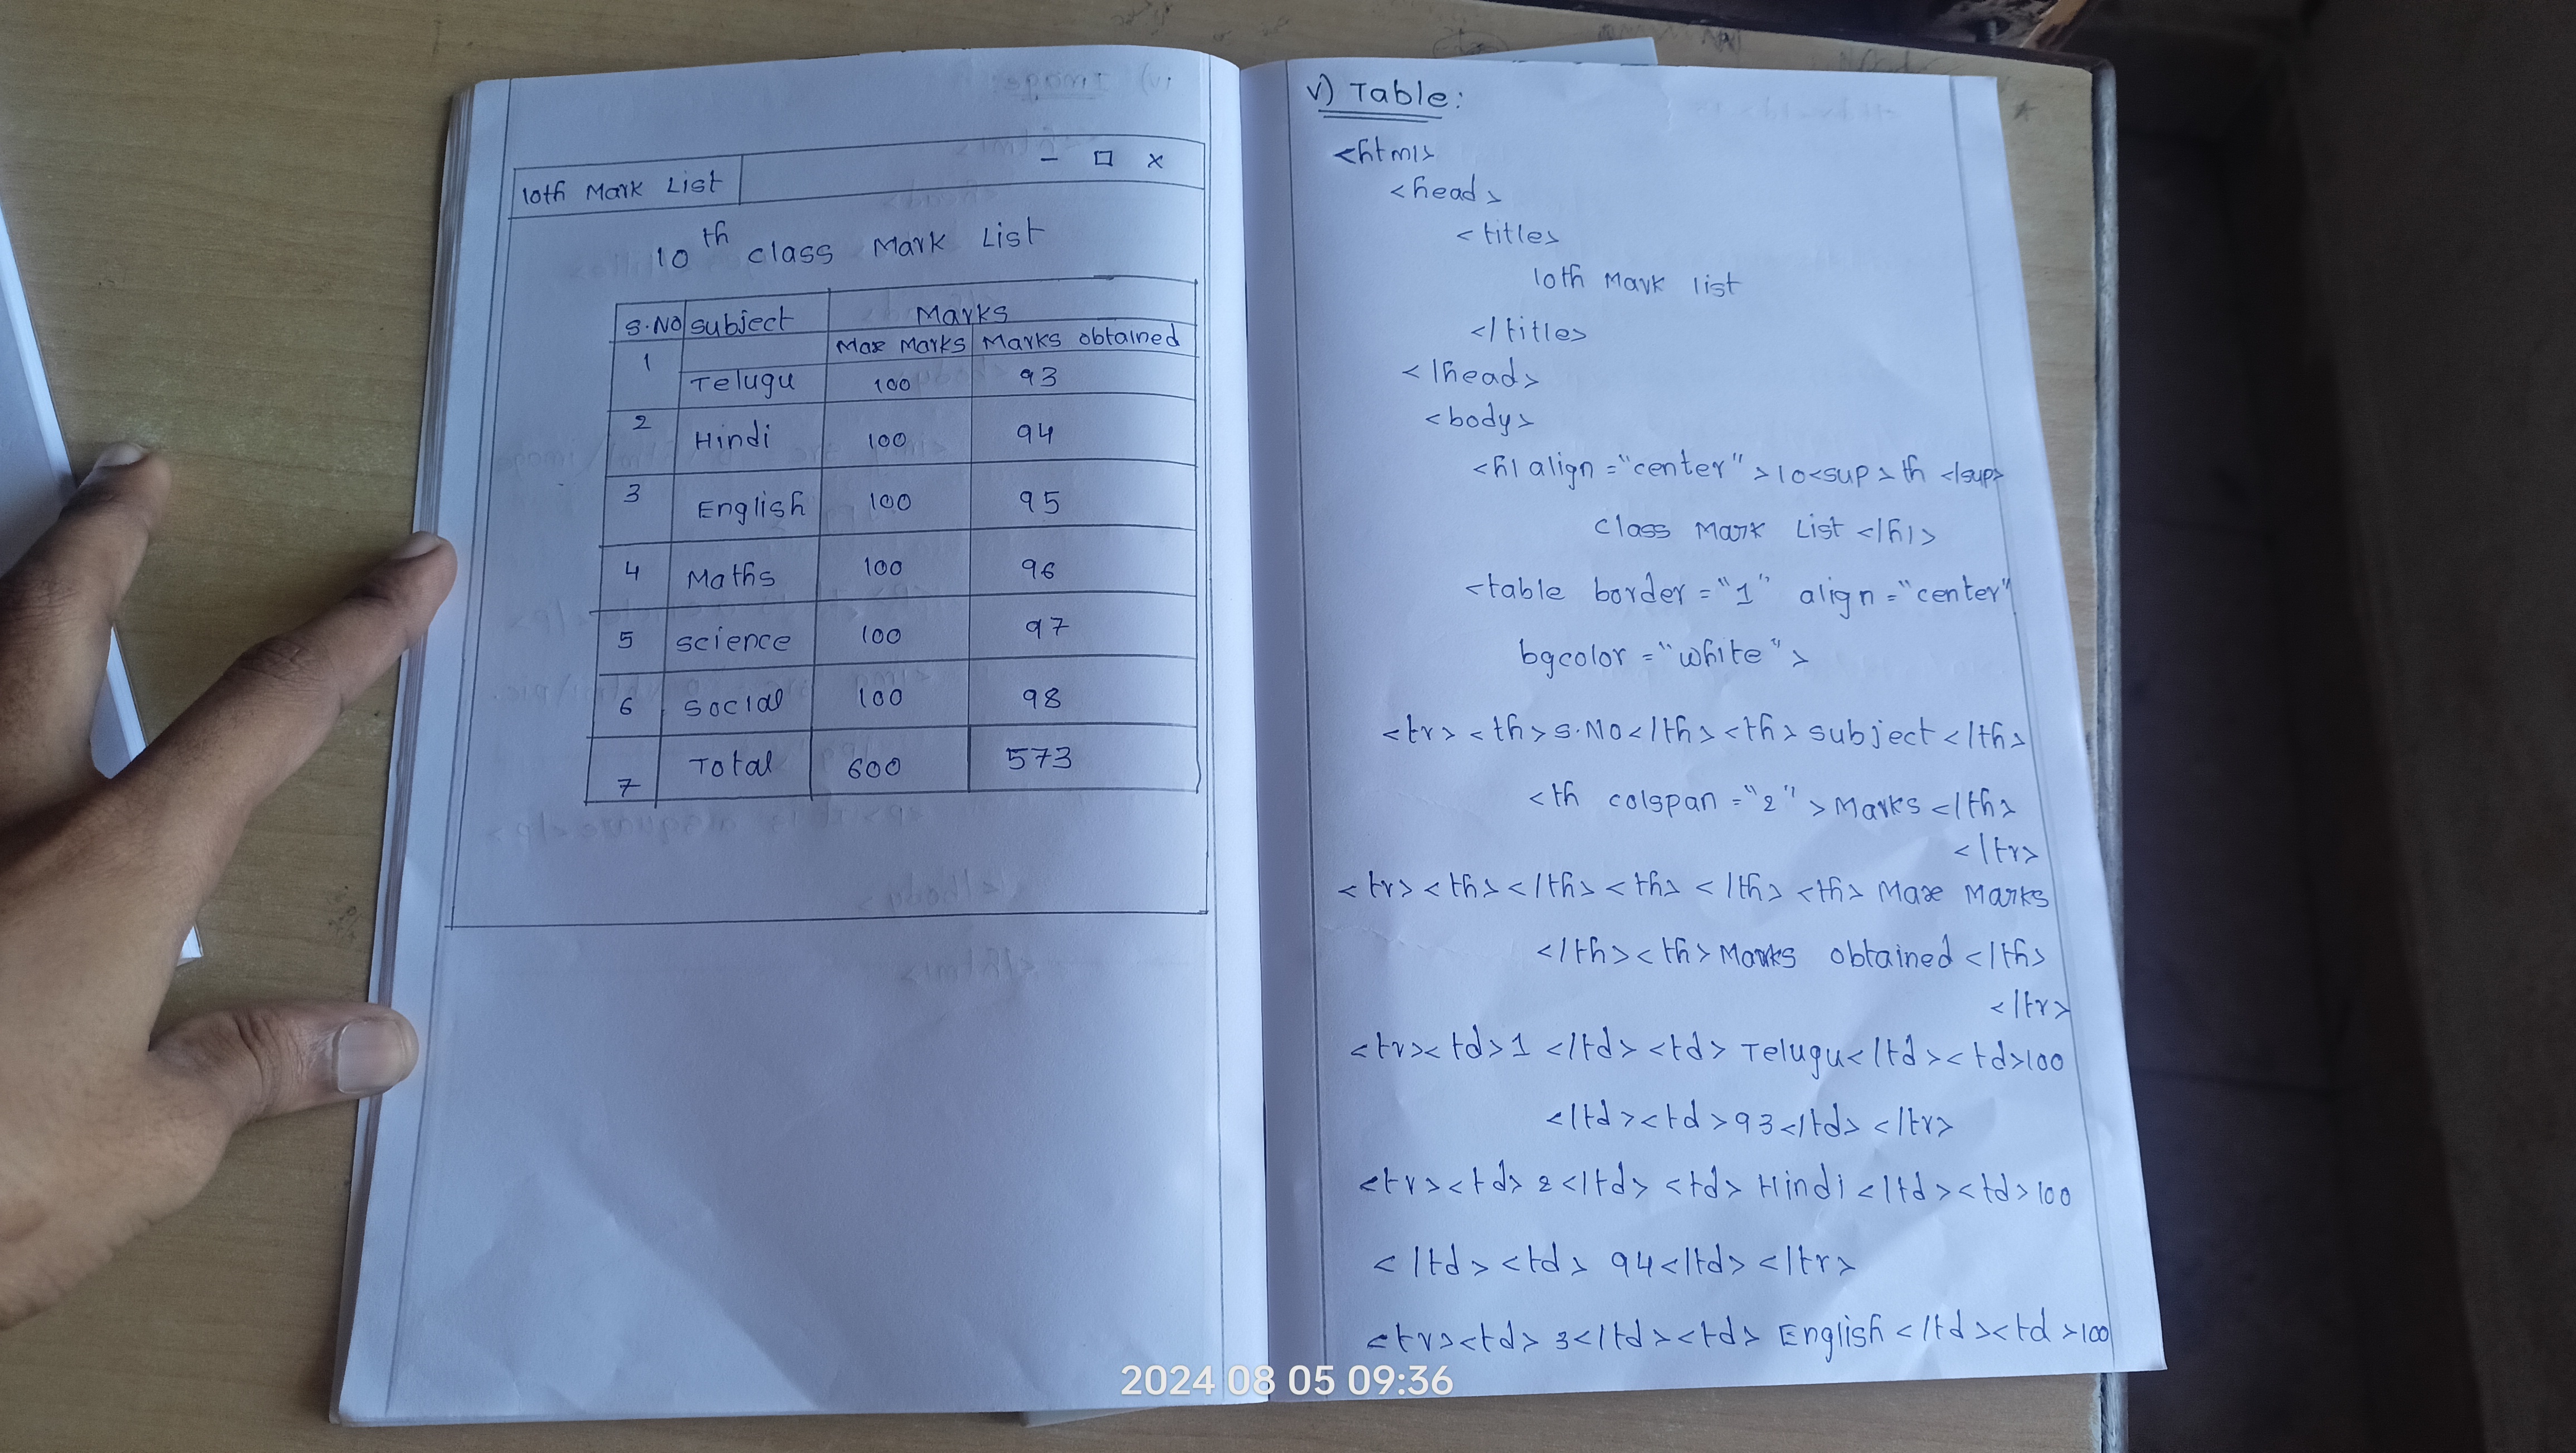 10th Mark List
- □ x
10th class Mark List
S.No Subject Marks
Max Marks Marks obtained
1 Telugu 100 93
2 Hindi 100 94
3 English 100 95
4 Maths 100 96
5 Science 100 97
6 Social 100 98
7 Total 600 573
v) Table:
<html>
<head>
<title>
10th Mark list
</title>
</head>
<body>
<h1 align="center">10<sup>th</sup>
Class Mark List</h1>
<table border="1" align="center"
bgcolor="white">
<tr><th>S.No</th><th>Subject</th>
<th colspan="2">Marks</th>
</tr>
<tr><th></th><th></th><th>Max Marks
</th><th>Marks obtained</th>
</tr>
<tr><td>1</td><td>Telugu</td><td>100
</td><td>93</td></tr>
<tr><td>2</td><td>Hindi</td><td>100
</td><td>94</td></tr>
<tr><td>3</td><td>English</td><td>100
2024 08 05 09:36